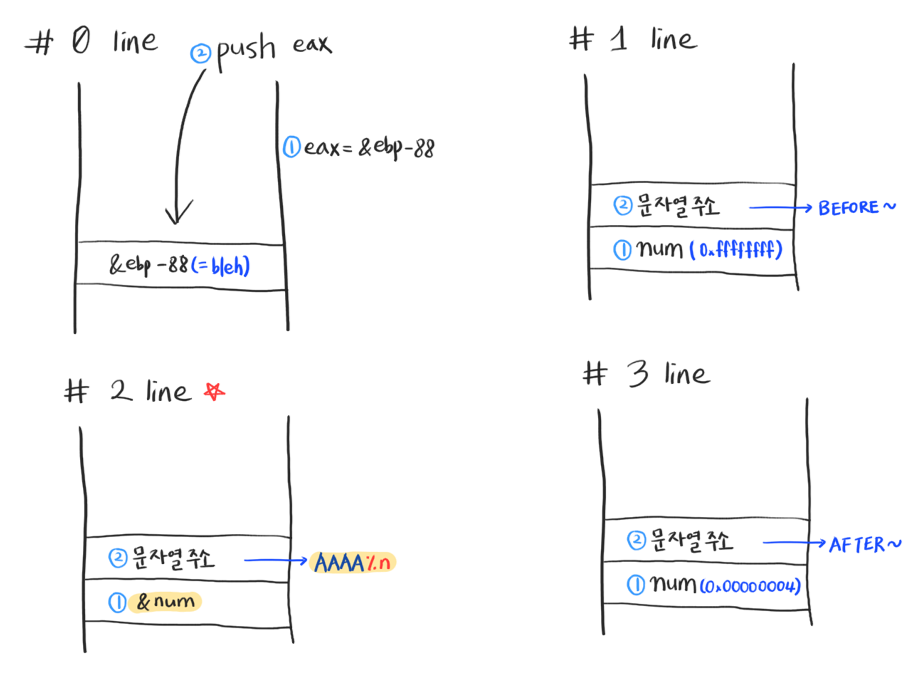 # 0 line
② push eax
① eax = &ebp-88
&ebp-88 (=bleh)
# 1 line
② 문자열 주소 → BEFORE~
① num (0xffffffff)
# 2 line ☆
② 문자열 주소 → AAAA%n
① &num
# 3 line
② 문자열 주소 → AFTER~
① num (0x00000004)